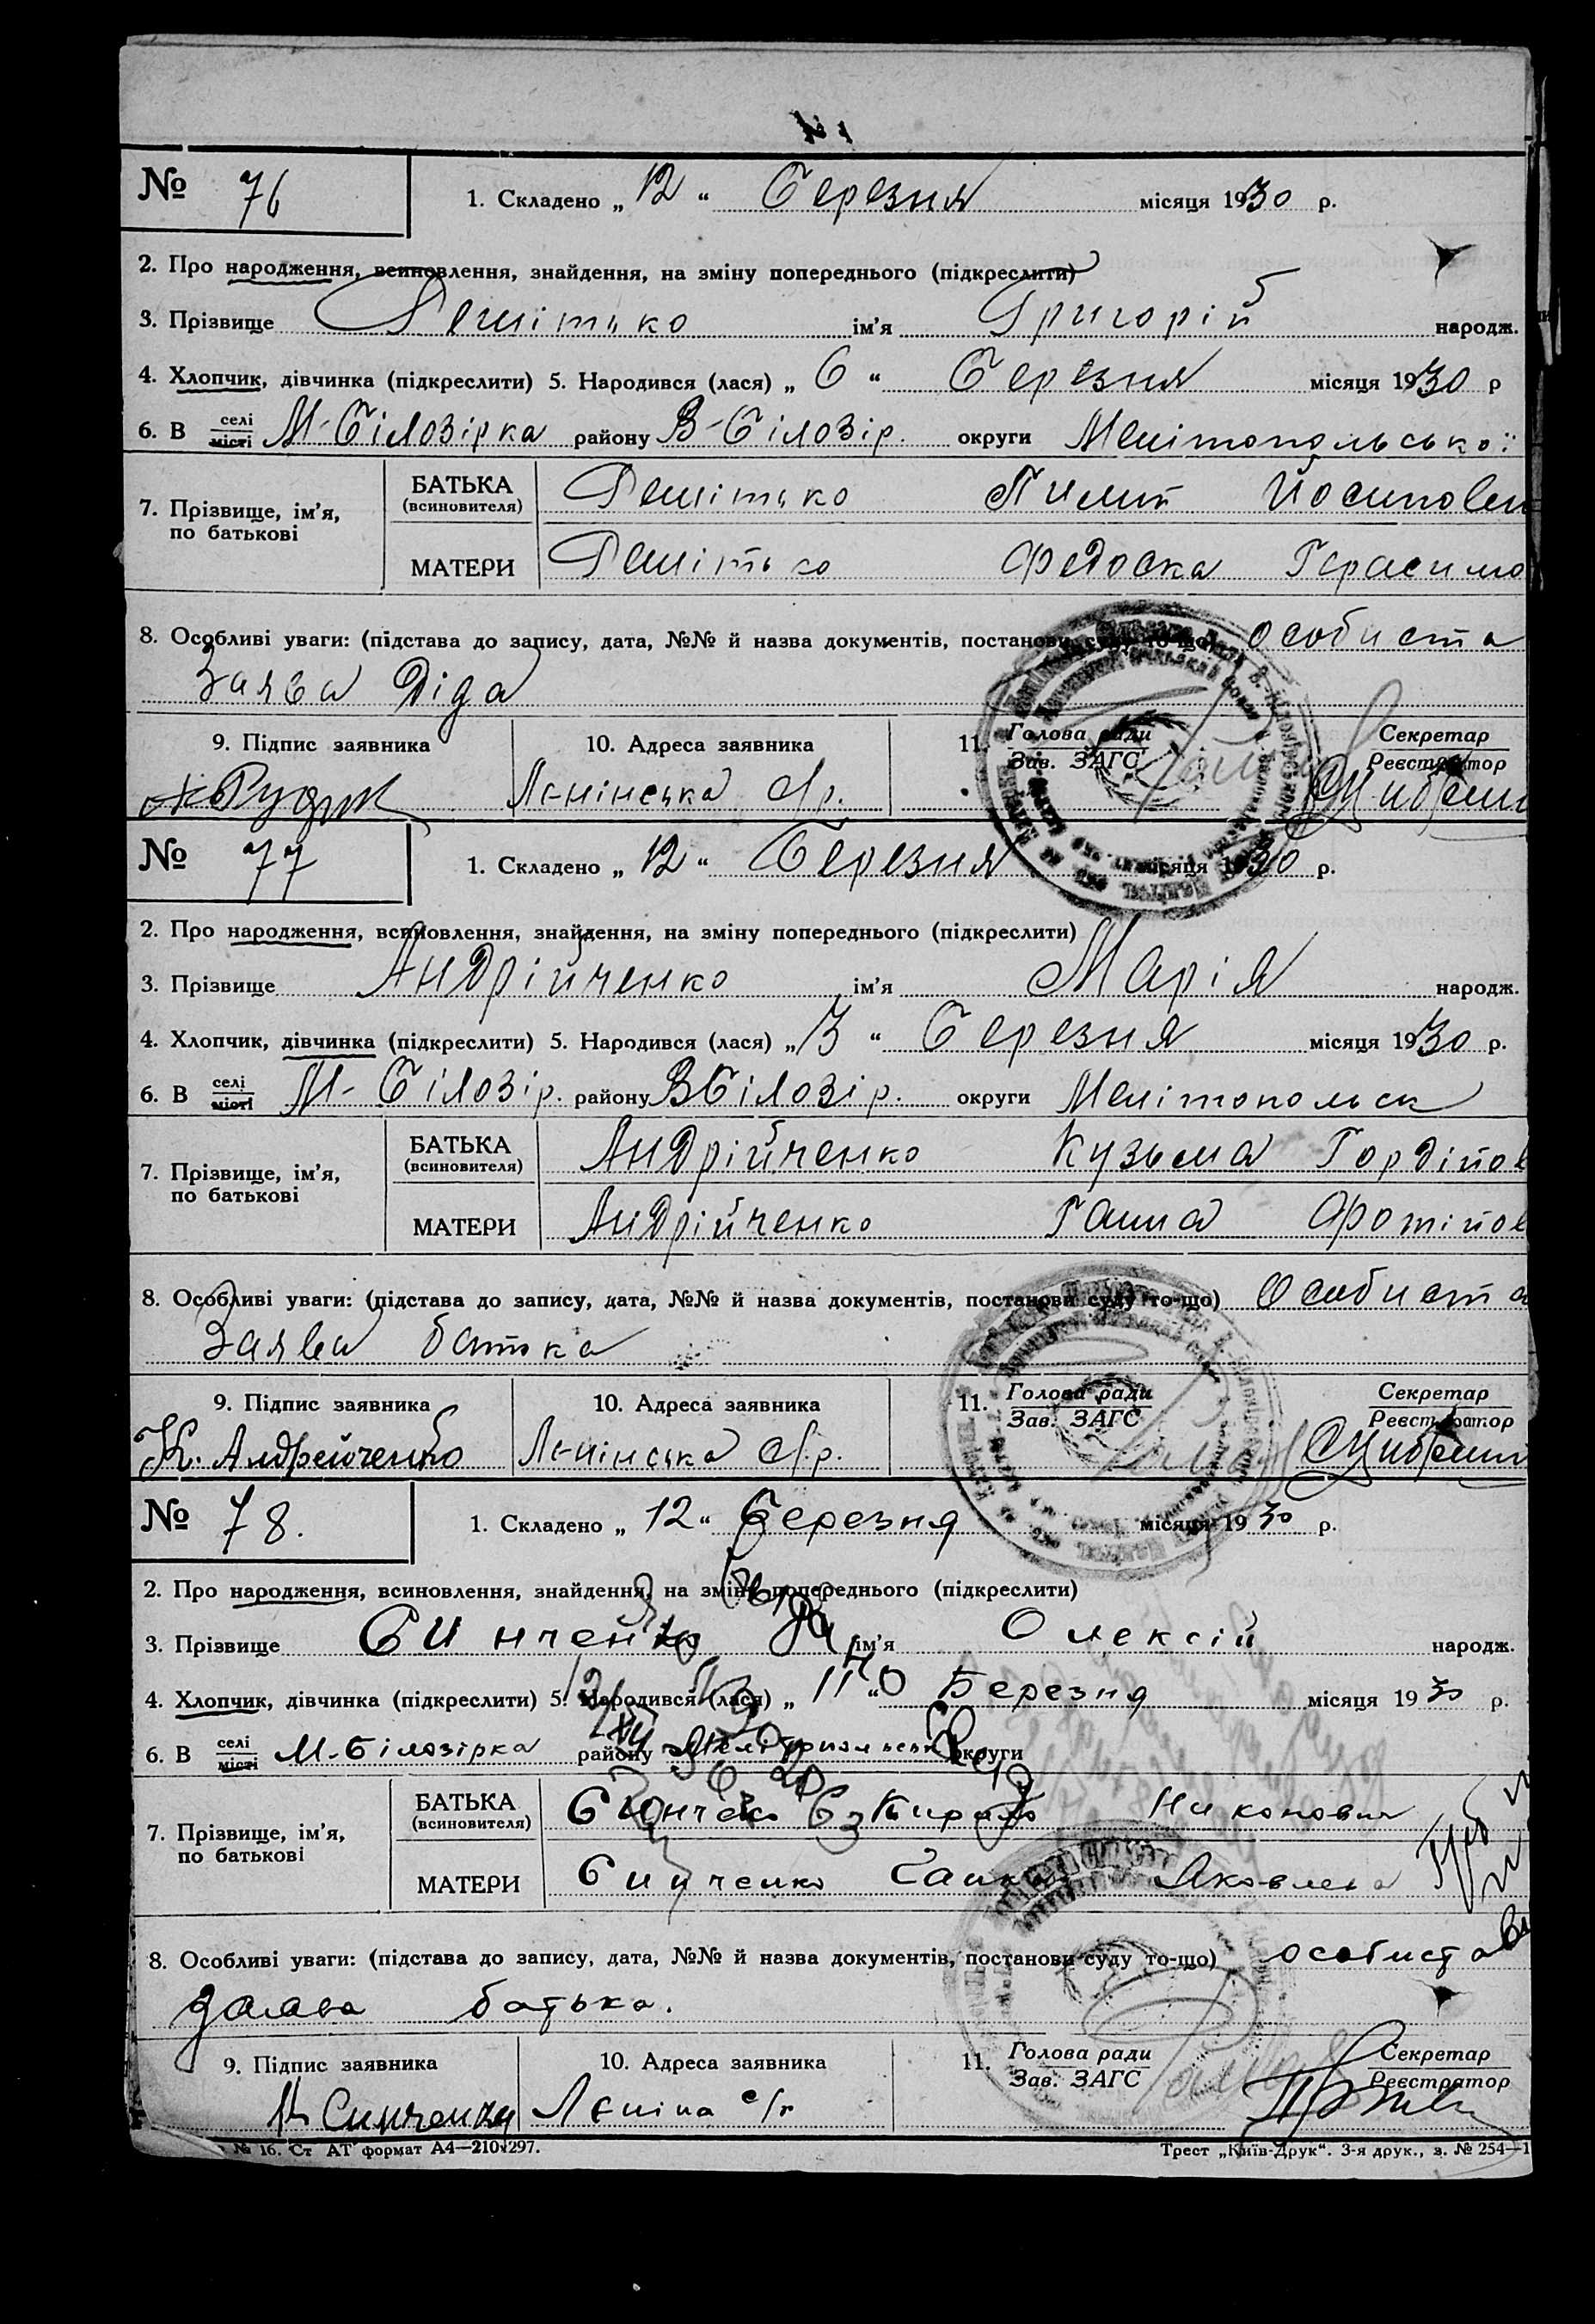 № 76
1. Складено „ 12 “ Березня місяця 1930 р.
2. Про народження, всиновлення, знайдення, на зміну попереднього (підкреслити)
3. Прізвище Решітько ім’я Григорій народж.
4. Хлопчик, дівчинка (підкреслити) 5. Народився (лася) „ 6 “ Березня місяця 1930 р
6. В селі місті М-Білозірка району В-Білозір. округи Мелітопольської
7. Прізвище, ім’я, по батькові
БАТЬКА (всиновителя) Решітько Пилип Йосипович
МАТЕРИ Решітько Федоска Герасимо
8. Особливі уваги: (підстава до запису, дата, №№ й назва документів, постанови суду то-що) Особиста
Заява Діда
9. Підпис заявника 10. Адреса заявника 11. Голова ради Зав. ЗАГС Секретар Реєстратор
Ленінська с/р.
№ 77
1. Складено „ 12 “ Березня місяця 1930 р.
2. Про народження, всиновлення, знайдення, на зміну попереднього (підкреслити)
3. Прізвище Андрійченко ім’я Марія народж.
4. Хлопчик, дівчинка (підкреслити) 5. Народився (лася) „ 3 “ Березня місяця 1930 р.
6. В селі місті М-Білозір. району В Білозір. округи Мелітопольск
7. Прізвище, ім’я, по батькові
БАТЬКА (всиновителя) Андрійченко Кузьма Гордійов
МАТЕРИ Андрійченко Ганна Фотійов
8. Особливі уваги: (підстава до запису, дата, №№ й назва документів, постанови суду то-що) Особиста
Заява батька
9. Підпис заявника 10. Адреса заявника 11. Голова ради Зав. ЗАГС Секретар Реєстратор
К. Андрейченко Ленінська с/р.
№ 78.
1. Складено „ 12 “ Березня місяця 1930 р.
2. Про народження, всиновлення, знайдення, на зміну попереднього (підкреслити)
3. Прізвище Синченко ім’я Олексій народж.
4. Хлопчик, дівчинка (підкреслити) 5. Народився (лася) „ 11 “ Березня місяця 1930 р.
6. В селі місті М-Білозірка району округи
7. Прізвище, ім’я, по батькові
БАТЬКА (всиновителя) Синченко Никонович
МАТЕРИ Синченко Ганна Яковлева
8. Особливі уваги: (підстава до запису, дата, №№ й назва документів, постанови суду то-що) особиста
заява батька.
9. Підпис заявника 10. Адреса заявника 11. Голова ради Зав. ЗАГС Секретар Реєстратор
Синченко Леніна с/р
№ 16. Ст АТ формат А4—210х297. Трест „Київ-Друк“. 3-я друк., з. № 254—1